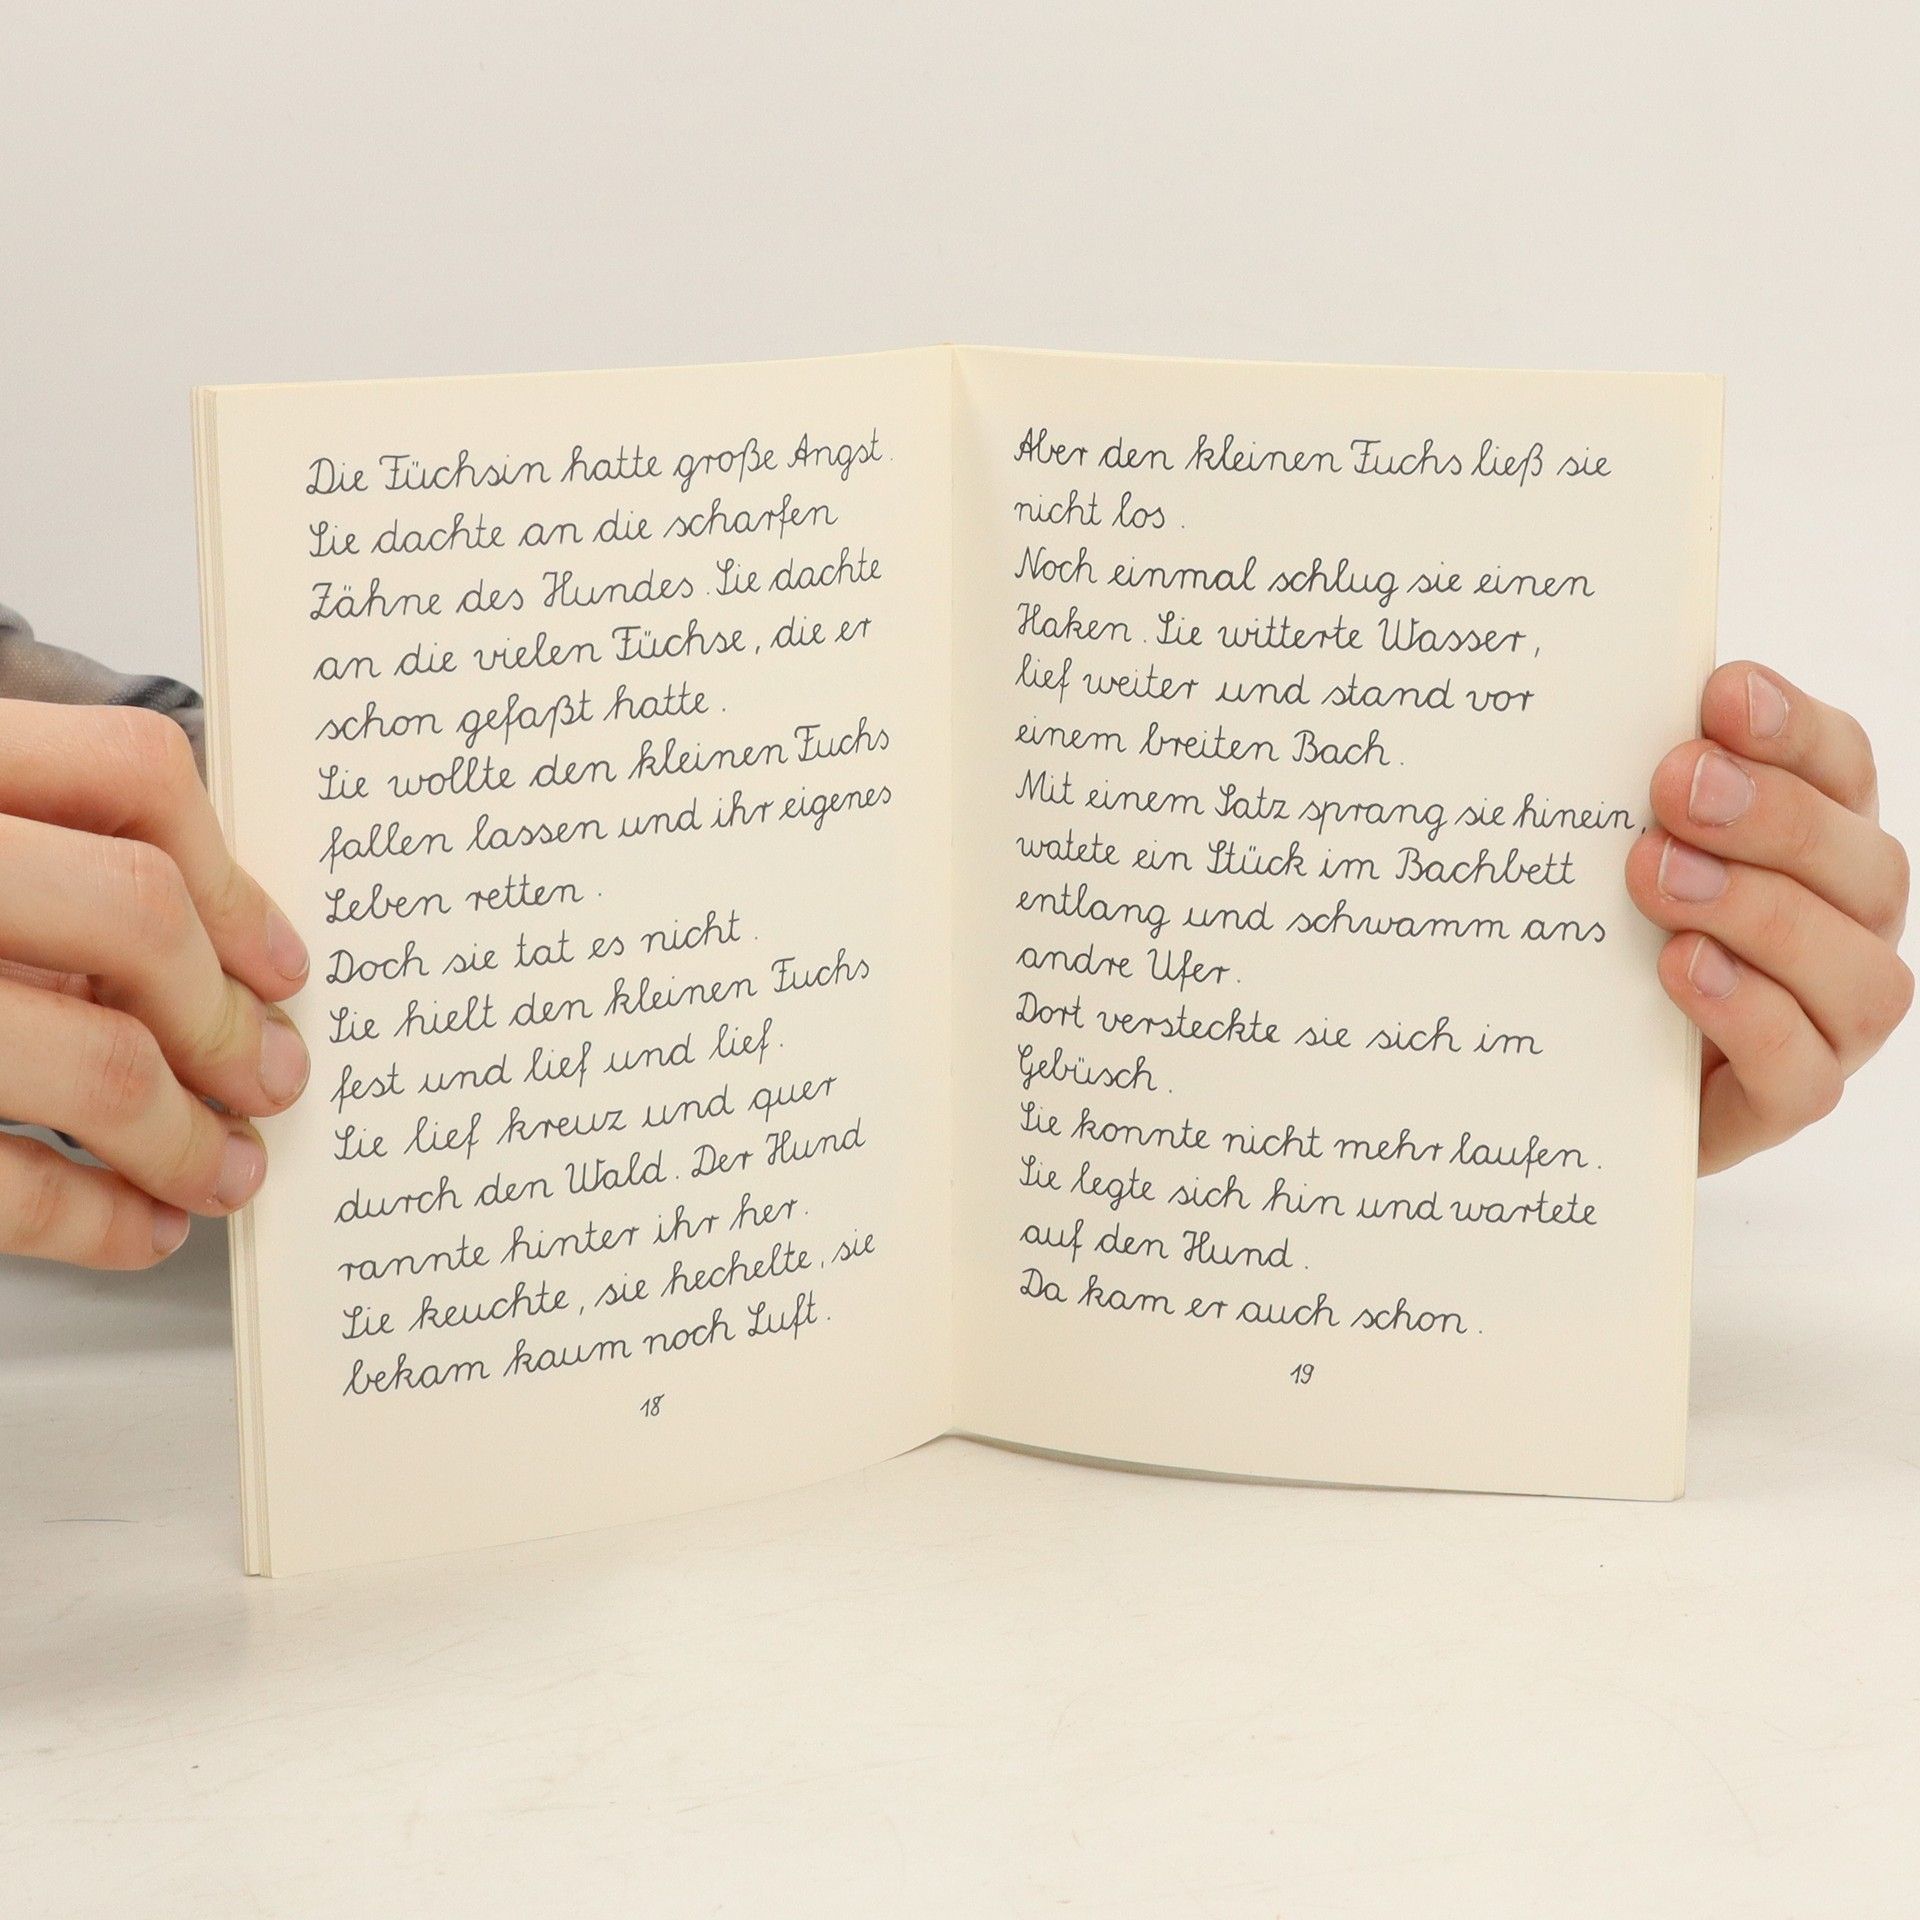 Die Füchsin hatte große Angst.
Sie dachte an die scharfen
Zähne des Hundes. Sie dachte
an die vielen Füchse, die er
schon gefaßt hatte.
Sie wollte den kleinen Fuchs
fallen lassen und ihr eigenes
Leben retten.
Doch sie tat es nicht.
Sie hielt den kleinen Fuchs
fest und lief und lief.
Sie lief kreuz und quer
durch den Wald. Der Hund
rannte hinter ihr her.
Sie keuchte, sie hechelte, sie
bekam kaum noch Luft.
18
Aber den kleinen Fuchs ließ sie
nicht los.
Noch einmal schlug sie einen
Haken. Sie witterte Wasser,
lief weiter und stand vor
einem breiten Bach.
Mit einem Satz sprang sie hinein,
watete ein Stück im Bachbett
entlang und schwamm ans
andre Ufer.
Dort versteckte sie sich im
Gebüsch.
Sie konnte nicht mehr laufen.
Sie legte sich hin und wartete
auf den Hund.
Da kam er auch schon.
19